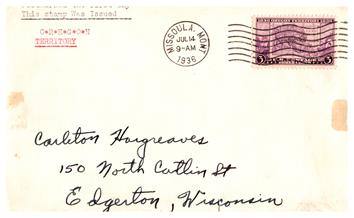 This Stamp Was Issued
O*R*E*G*O*N
TERRITORY
MISSOULA, MONT
JUL 14
9-AM
1936
3
3
Carleton Hargreaves
150 North Catlin St
Edgerton, Wisconsin